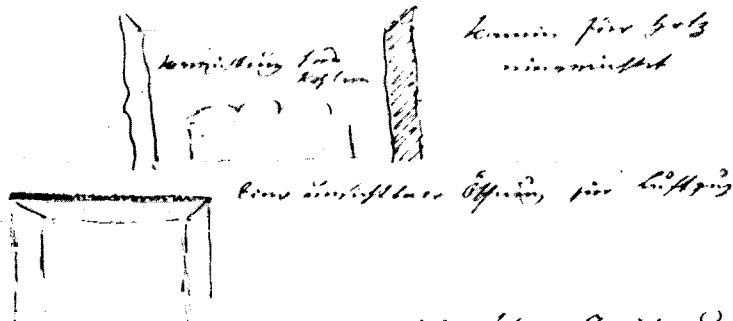 Kamin für Holz
eingerichtet
Vorrichtung für
Kohlen
Eine unsichtbare Öffnung für Luftzug